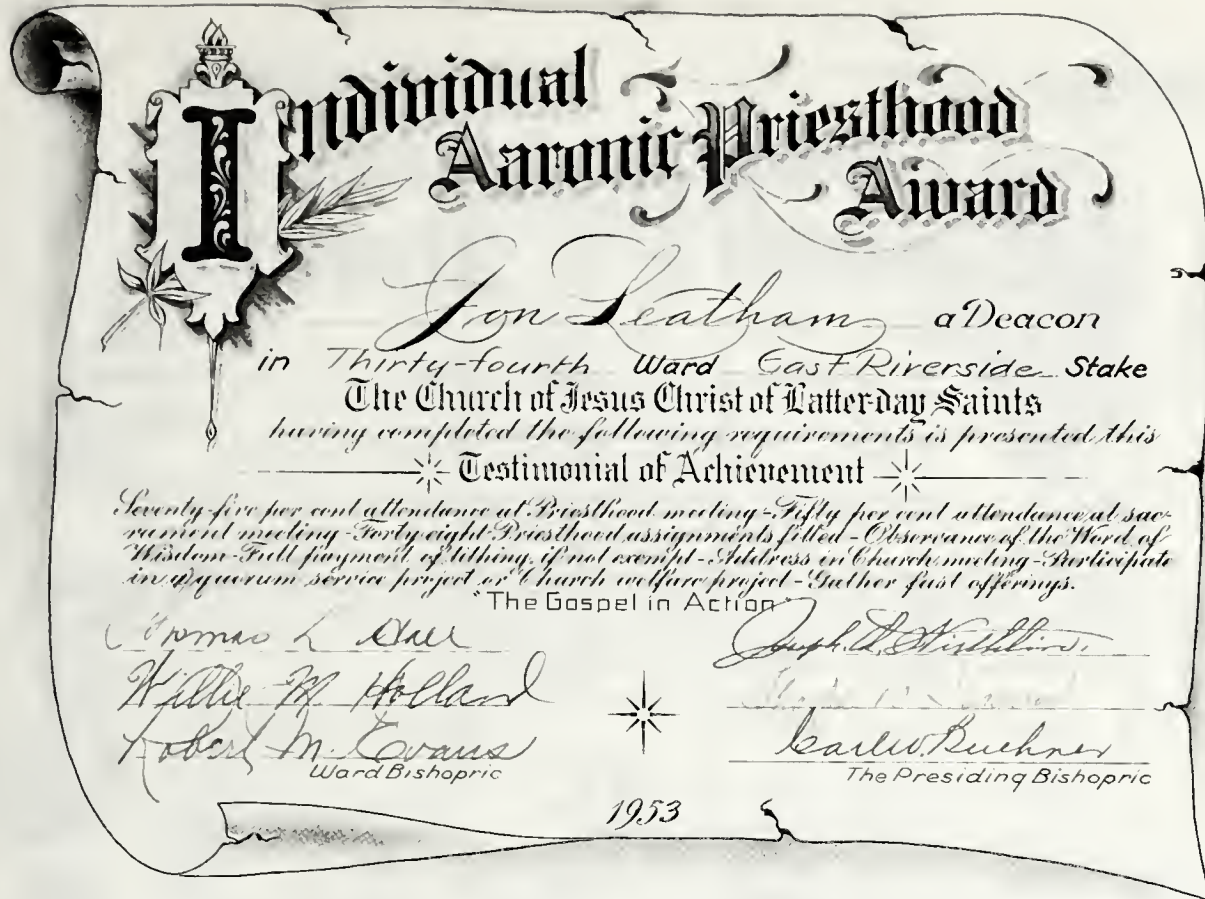 Individual
Aaronic Priesthood
Award
Jon Leatham a Deacon
in Thirty-fourth Ward East Riverside Stake
The Church of Jesus Christ of Latter-day Saints
having completed the following requirements is presented this
Testimonial of Achievement
Seventy-five per cent attendance at Priesthood meeting - Fifty per cent attendance at sac-
rament meeting - Forty eight Priesthood assignments filled - Observance of the Word of
Wisdom - Full payment of tithing, if not exempt - Address in Church meeting - Participate
in quorum service project or Church welfare project - Gather fast offerings.
"The Gospel in Action"
L
Joseph L. Wirthlin.
Willie M Holland
Robert M. Evans
Carl W. Buehner
Ward Bishopric
The Presiding Bishopric
1953